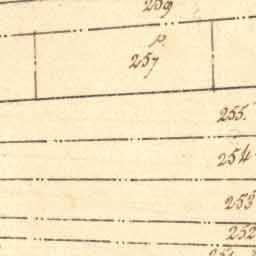 259
p.
257
255.
254
253
252
251